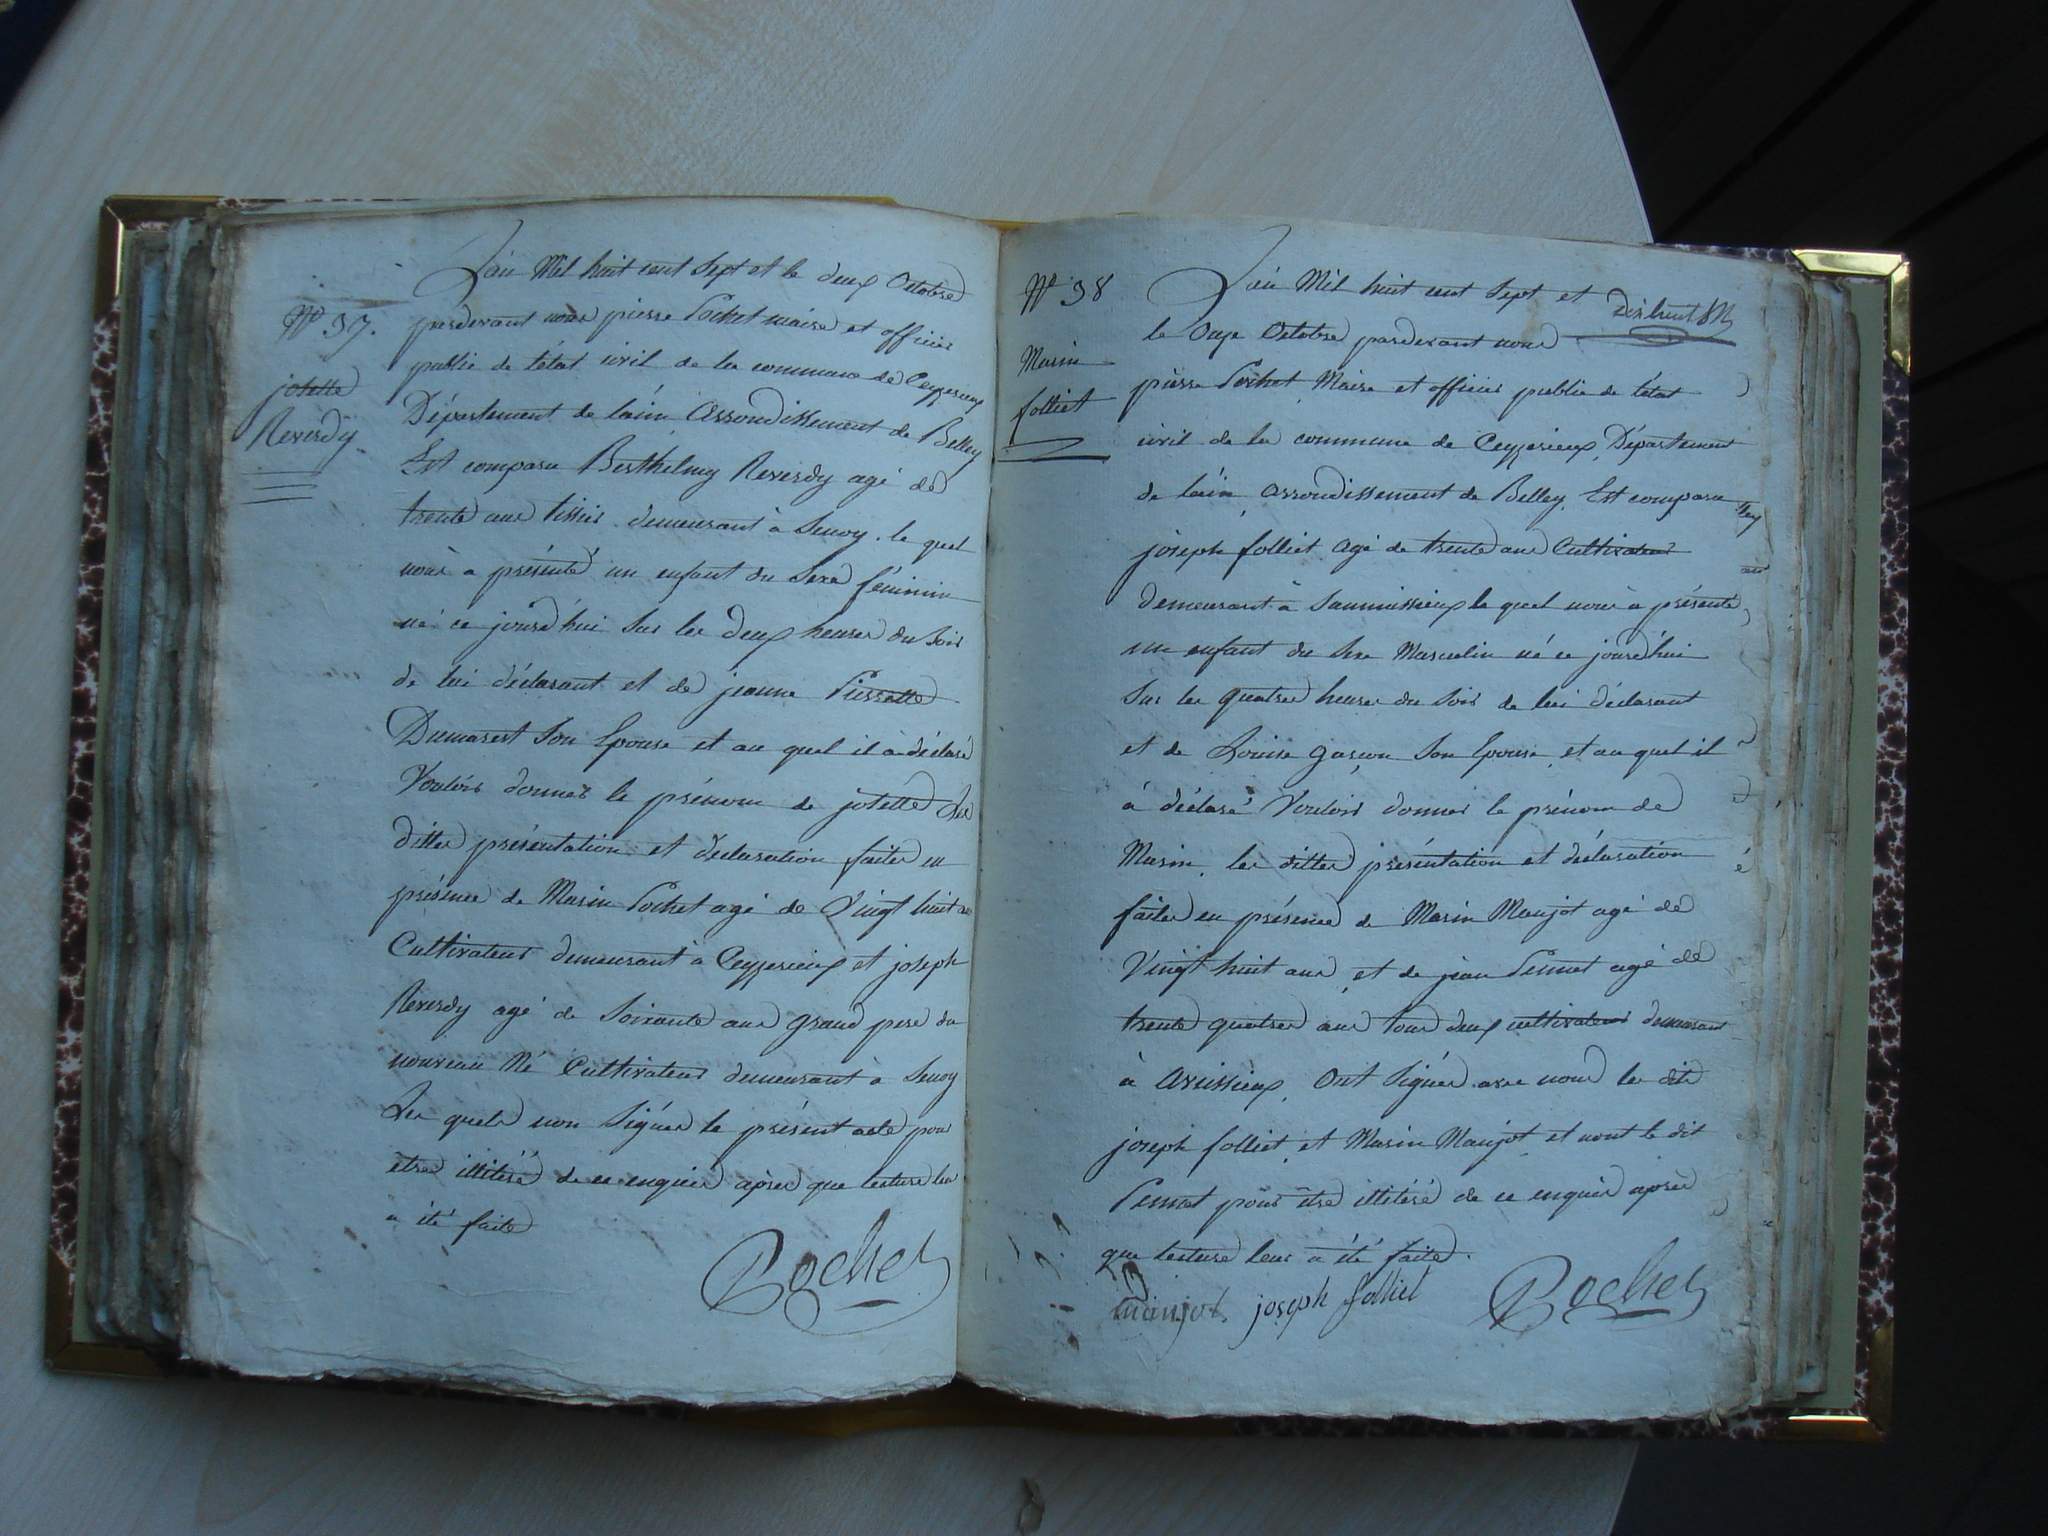 N° 37.
josette
Reverdy
L'ain Mil huit cent Sept et le deux Octobre
pardevant nous pierre Pochet maire et officier
public de l'état civil de la commune de Ceyzerieux
Département de l'ain, Arrondissement de Belley
Est comparu Berthelmy Reverdy agé de
trente ans tissier demeurant à Senoy. le quel
nous a présenté un enfant du Sexe féminin
né ce jourd'hui sur les deux heures du soir
de lui déclarant et de jeanne Pierrette
Dumarest Son Epouse et au quel il à déclaré
Vouloir donner le prénom de josette Les
dittes présentation et déclaration faites en
présence de Marin Pochet agé de Vingt huit ans
Cultivateur demeurant à Ceyzerieux et joseph
Reverdy agé de Soixante ans grand pere du
nouveau Né Cultivateur demeurant à Senoy
Les quels non Signés le présent acte pour
être illitéré de ce enquis après que lecture leur
a été faite
Pochet
N° 38
Marin
folliet
L'ain Mil huit cent Sept et
Dix huit
le Onze Octobre pardevant nous
pierre Pochet Maire et officier public de l'état
civil de la commune de Ceyzerieux, Département
de l'ain, arrondissement de Belley, Est comparu
joseph folliet agé de trente ans Cultivateur
demeurant à Saumissieux le quel nous à présenté
un enfant du Sexe Masculin né ce jourd'hui
Sur les quatres heures du Soir de lui déclarant
et de Louise garçon Son Epouse, et au quel il
à déclaré Vouloir donner le prénom de
Marin, les dittes présentation et déclaration
faites en présence de Marin Maujot agé de
Vingt huit ans, et de jean Pennet agé de
trente quatres ans tous deux cultivateurs demeurant
à avissieux, Ont Signés avec nous les dits
joseph folliet, et Marin Maujot, et nont le dit
Pennet pour être illitéré de ce enquis après
que lecture leur a été faite.
maujot joseph folliet Pochet